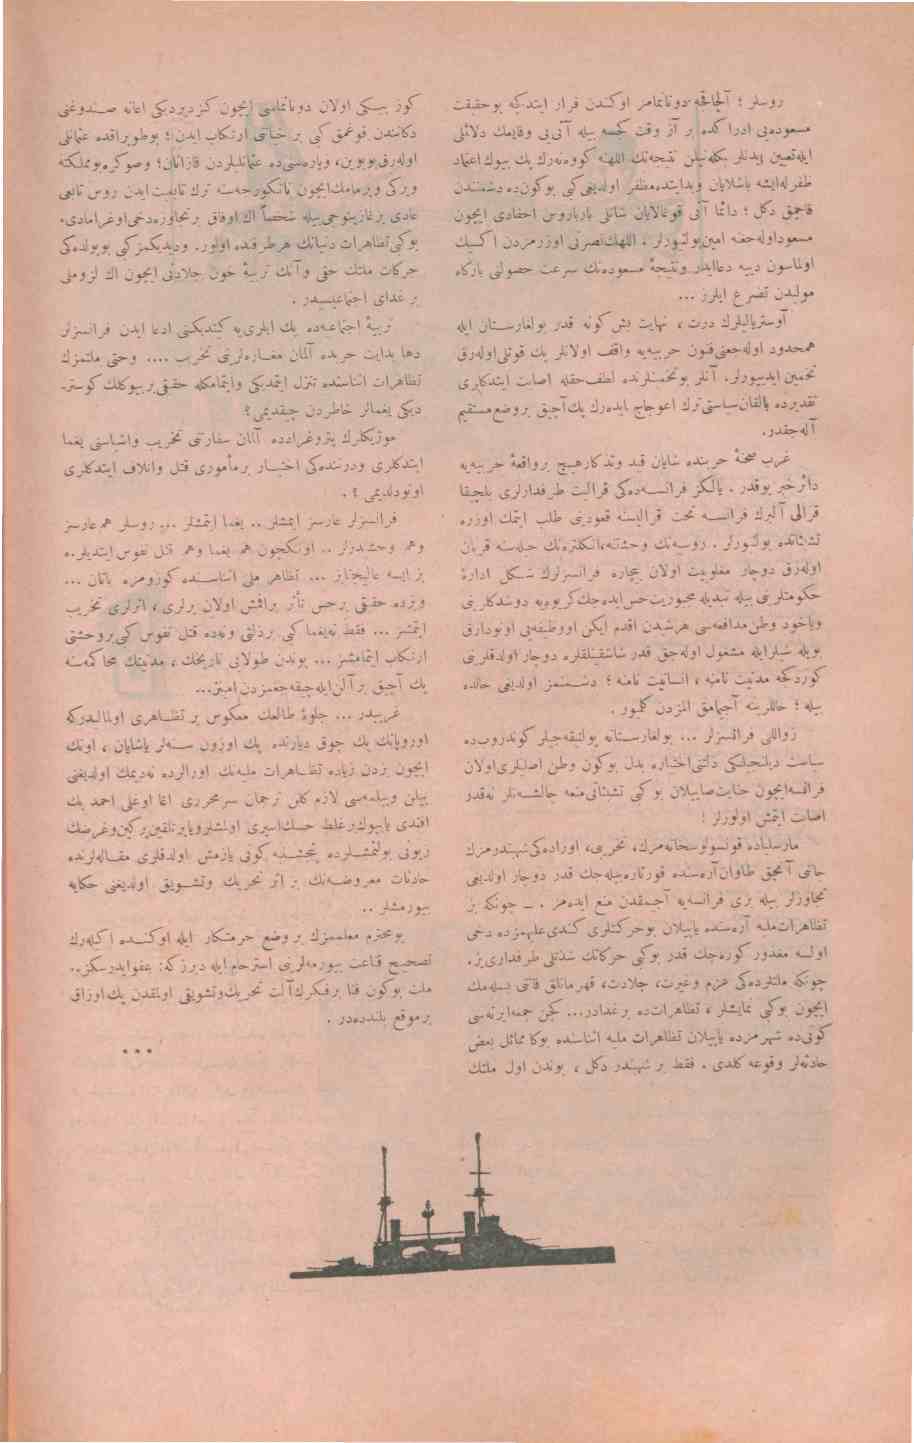 روسلر ؛ آلچاقجه دونانمامز اوکندن فرار ایتدکه بوحقیقت
مسعوده‌یی ادراکده بر آز وقت کچسه بیله آتی‌یی وقایعک دلائلی
ایله‌تعیین ایدنلر بکله‌نیلن نتیجه‌نک اللهنه کووه‌نه‌رک پک بیوک اعتماد
ظفرله‌ایشه باشلایان وبدایتده‌مظفر اولدیغی کبی بوکون‌ده دشمندن
قاچمق دکل ؛ دائما آنی قوغالایان شانلی بارباروس احفادی ایچون
مسعوداوله‌جغنه امین‌بولنیورلر . اللهک‌نصرتی اوزرمزدن اکسیک
اولماسون دییه دعاایدر ونتیجهٔ مسعوده‌نک سرعت حصولنی بارکاه
مولیدن تضرع ایلرز ...
آوستریالیلرک درت ، نهایت بش‌کونه قدر بولغارستان ایله
همحدود اوله‌جغنی‌فنون حربیه‌یه واقف اولانلر پک قوتلی‌اوله‌رق
تخمین ایدییورلر. آنلر بوتخمینلرنده لطف‌حقله اصابت ایتدکلری
تقدیرده بالقان‌سیاستی‌ترک اعوجاج ایده‌رک پک‌آچیق بروضع‌مستقیم
آله‌جقدر.
غرب صحنهٔ حربنده شایان قید وتذکارهیچ برواقعهٔ حربیه‌یه
دائرخبر یوقدر . یالکز فرانسه‌ده‌کی قرالیت طرفدارلری بلچیقا
قرالی آلبرک فرانسه تخت قرالیسنه قعودینی طلب ایتمک اوزره
تشبثاتده بولنیورلر . روسیه‌نک وحشتنه،انکلتره‌نک حیله‌سنه قربان
اوله‌رق دوچار مغلوبیت اولان بیچاره فرانسزلرک شکل ادارهٔ
حکومتلرینی بیله تبدیله مجبوریت‌حس‌ایده‌جک‌کریوه‌یه دوشدکلرینی
ویاخود وطن‌مدافعه‌سی هرشیدن اقدم ایکن اووظیفه‌یی اونودارق
بویله شیلرایله مشغول اوله‌جق قدر شاشقینلقلره دوچار اولدقلرینی
کوردکجه مدنیت نامنه ، انسانیت نامنه ؛ دشمنمز اولدیغی حالده
بیله ؛ حاللرینه آجیمامق المزدن کلمیور .
زواللی فرانسزلر ... بولغارستانه پولتیقه‌جیلر کوندروب‌ده
سیاست دیلنجیلکی ذلتنی‌اختیاره بدل بوکون وطن اصلیلری‌اولان
فرانسه‌ایچون جنایت‌صایلان بوکبی تشبثاتی‌منعه چالیشسه‌لر نه‌قدر
اصابت ایتمش اولورلر !
مارسلیاده قونسولوسخانه‌مزک، تخریبی، اوراده‌کی‌شهبندرمزک
جانی آنجق طاوان‌آره‌سنده قورتاره‌بیله‌جک قدر دوچار اولدیغی
تجاوزلر بیله بزی فرانسه‌یه آجیمقدن منع ایده‌مز . ــ چونکه بز
تظاهرات‌ملیه آره‌سنده یاپیلان بوحرکتلری کندی‌علیهمزده دخی
اولسه معذور کوره‌جک قدر بوکبی حرکاتک شدتلی طرفداری‌یز.
چونکه ملتلرده‌کی عزم وغیرت، جلادت، قهرمانلق قانی بسله‌مک
ایچون بوکبی نمایشلر ، تظاهرات‌ده برغدادر... کچن جمعه‌ایرته‌سی
کونی‌ده شهرمزده یاپیلان تظاهرات ملیه اثناسنده بوکا مماثل بعض
حادثه‌لر وقوعه کلدی . فقط بر شهبندر دکل ، بوندن اول ملتک
کوز ببکی اولان دونانماسی ایچون کزدیردیکی اعانه صندوغنی
دکانندن قوغمق کبی بر خیانتی ارتکاب ایدن؛ بوطوپراقده عثمانلی
اوله‌رق‌بویوین، وپاره‌سنی‌ده عثمانلیلردن قازانان؛ وصوکره‌بومملکته
ویرکی ویرمامک‌ایچون تانکورجه‌سنه ترک تابعیت‌ایدن روس تابعی
عادی برغازینوجی‌بیله شخصاً اک اوفاق برتجاوزه‌دخی‌اوغرامادی.
بوکبی‌تظاهرات دنیانک هرطرفنده اولور. ودیدیکمزکبی بویولده‌کی
حرکات ملتک حقی وآنک تربیهٔ خون جلادتی ایچون اک لزوملی
برغدای اجتماعیسیدر .
تربیهٔ اجتماعیه‌ده پک ایلری‌یه کیتدیکنی ادعا ایدن فرانسزلر
دها بدایت حربده آلمان مغازه‌لرینی تخریب .... وحتی ملتمزک
تظاهرات اثناسنده تنزل ایتمدیکی وایتمامکله حقیقی‌بربیوکلک کوستر-
دیکی یغمالر خاطردن چیقدیمی؟
موژیکلرک پتروغرادده آلمان سفارتنی تخریب واشیاسنی یغما
ایتدکلری ودرننده‌کی اختیار برمأموری قتل واتلاف ایتدکلری
اونودلدیمی ؟ .
فرانسزلر عارسز ایمشلر .. یغما ایتمشلر ... روسلر هم‌عارسز
وهم وحشیدرلر .. اونکچون هم یغما وهم قتل نفوس‌ایتدیلر.ه
بز ایسه عالیجنابز ... تظاهر ملی اثناسنده کوزومزه باتان ...
وبزده حقیقی برحس تأثر براقمش اولان برلری ، اثرلری تخریب
ایتمشز ... فقط نه‌یغما کبی برذلتی ونه‌ده قتل نفوس کبی‌بروحشتی
ارتکاب ایتمامشز ... بوندن طولایی تاریخک ، مدنیتک محاکمه‌سنه
پک آچیق برآلن‌ایله‌چیقه‌جغمزدن‌امینز...
غریبدر ... جلوهٔ طالعک معکوس بر تظاهری اولمالیدرکه
اوروپانک پک چوق دیارنده پک اوزون سنه‌لر یاشایان ، اونک
ایچون بزدن زیاده تظاهرات ملیه‌نک اورالرده نه‌دیمک اولدیغنی
بیلن وبیلمه‌سی لازم‌کلن ترجمان سرمحرری اغا اوغلی احمد بک
افندی یابیوک‌برغلط حسک‌اسیری اولمشلرویابرتلقین‌پرکین‌وغرضک
زبونی بولنمشلرده پنجشنبه کونی یازمش اولدقلری مقاله‌لرنده
حادثات معروضه‌نک بر اثر تحریک وتشویق اولدیغنی حکایه
بیورمشلر ..
بومحترم معلممزک بروضع حرمتکار ایله اوکنده اکیله‌رک
تصحیح قناعت بیورمه‌لرینی استرحام‌ایله دیرزکه: عفوایدرسکز..
ملت بوکون فنا برفکرک‌آلت تحریک‌وتشویقی اولمقدن پک‌اوزاق
برموقع بلنددە‌در .
* * *